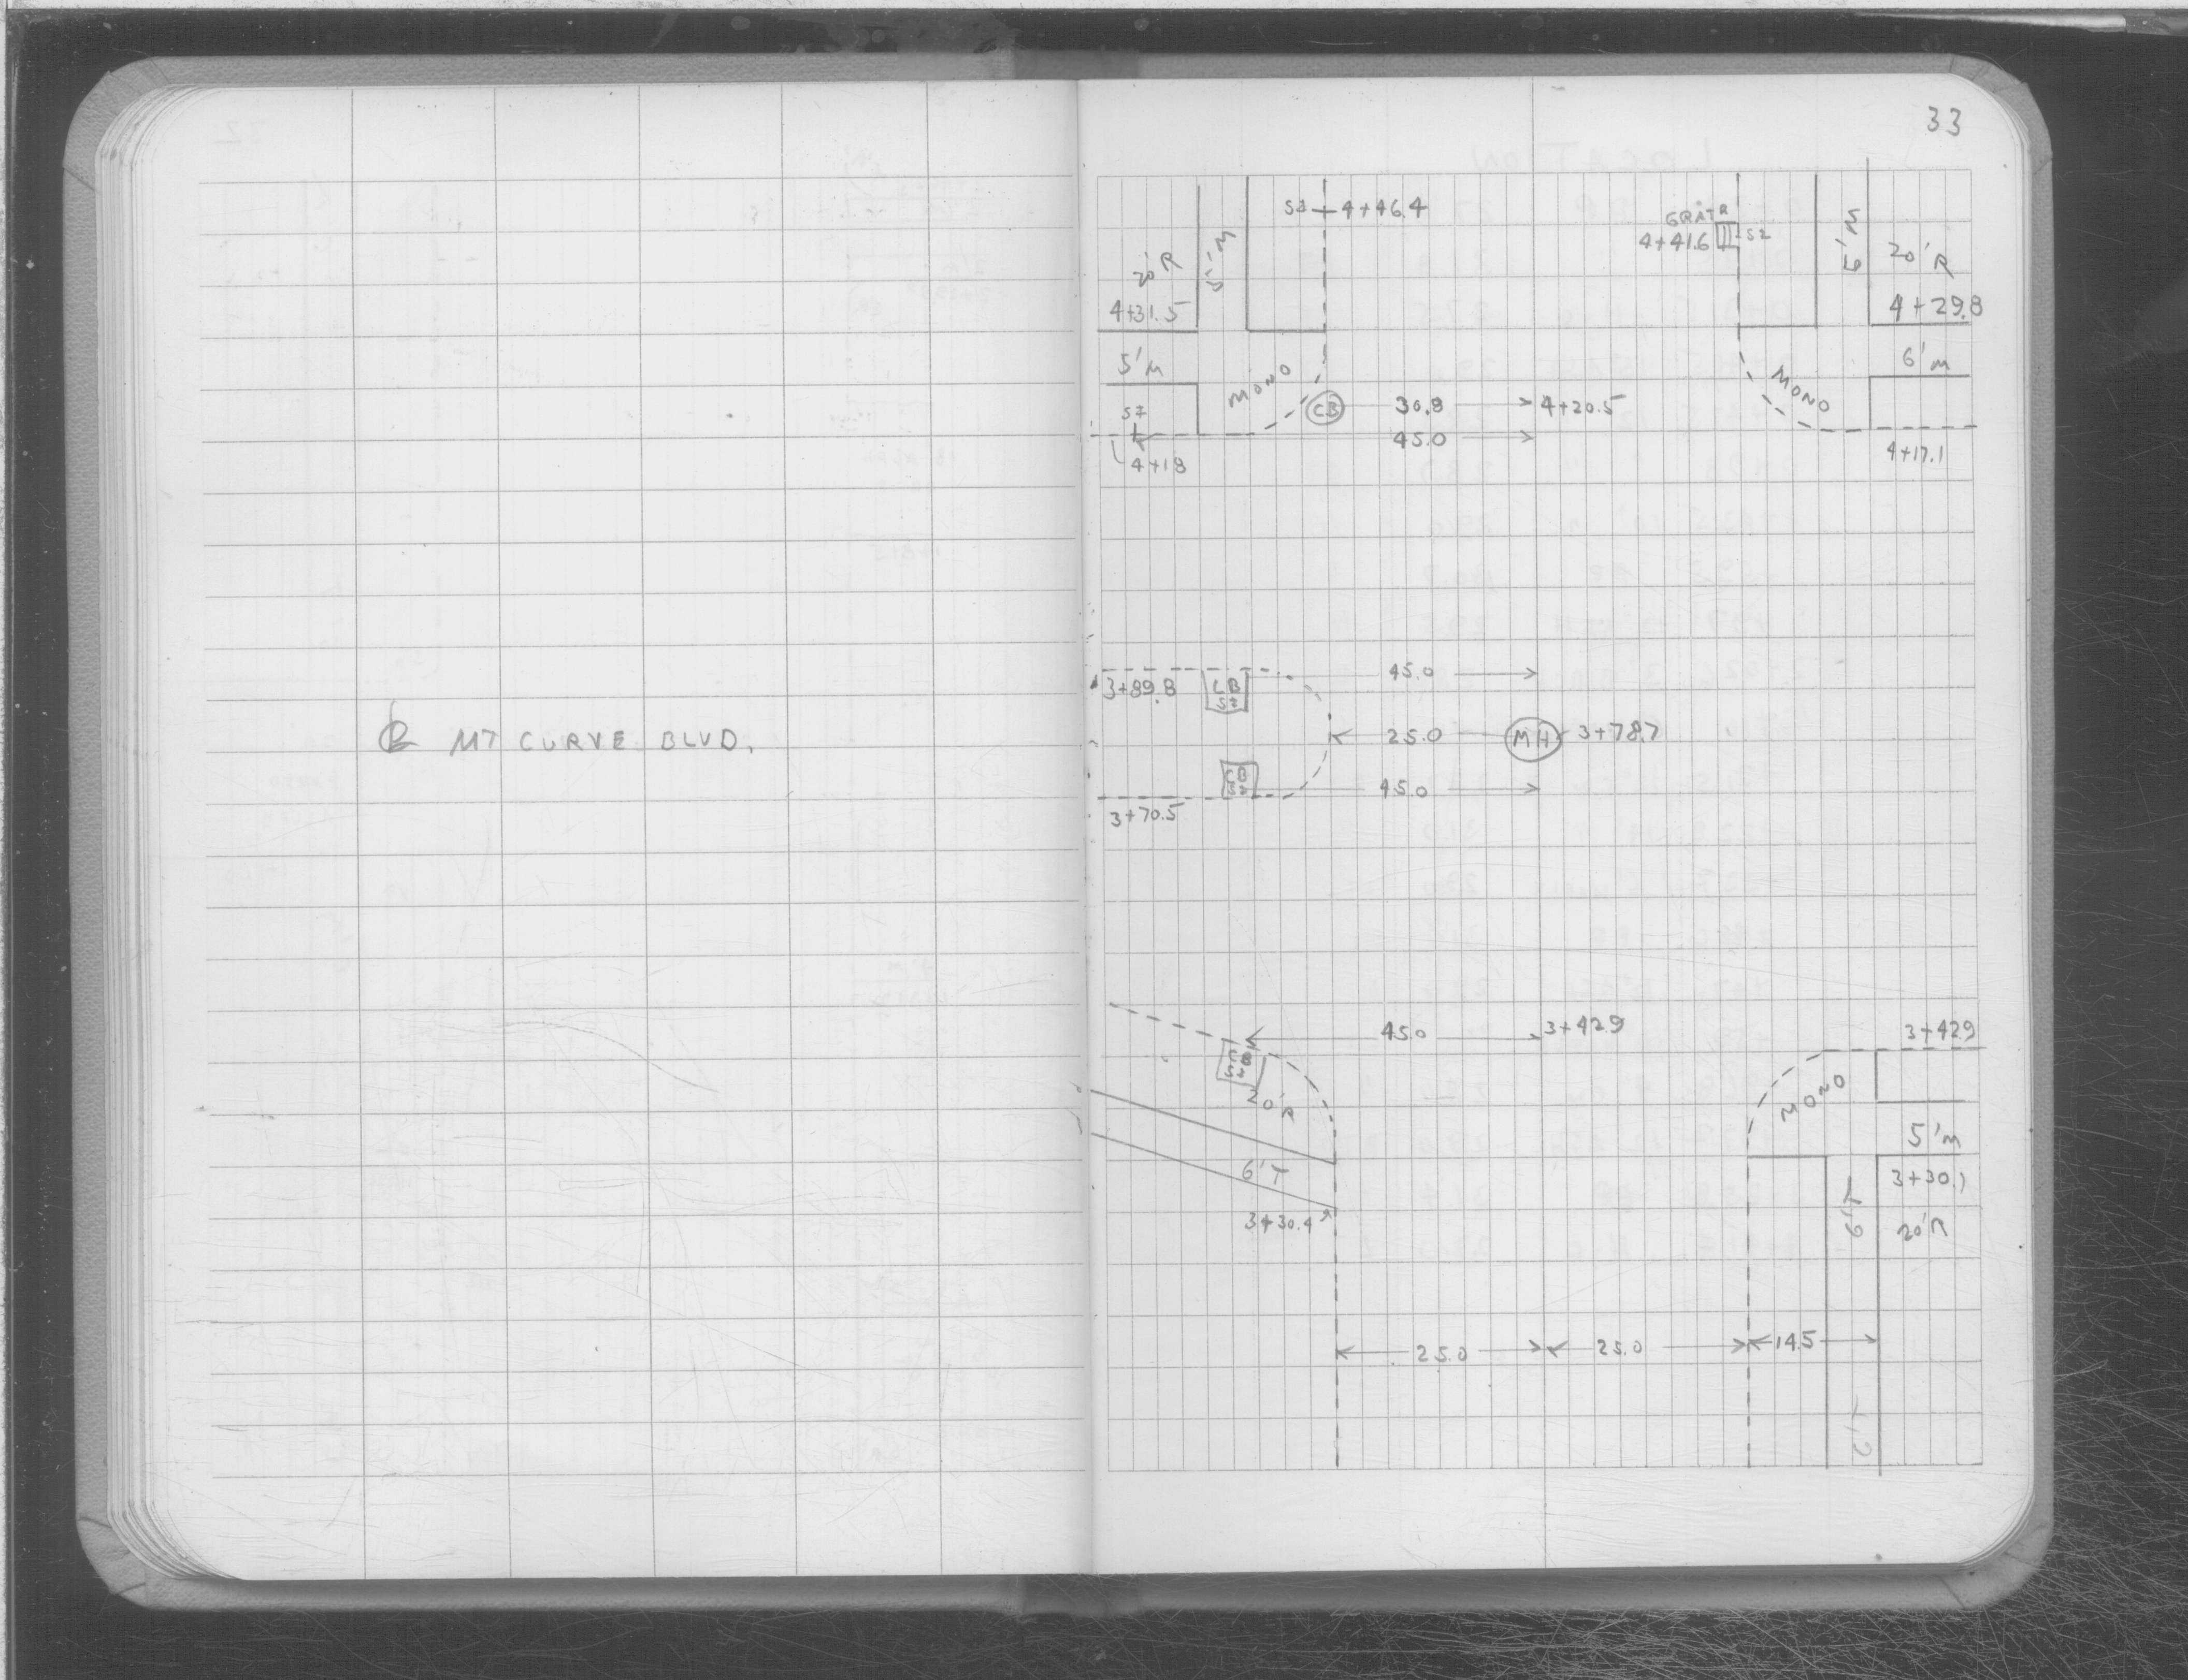 33
S2 4+46.4
GRATR
4+41.6 S2
20'R
5'M
6'M
20'R
4+31.5
4+29.8
5'M
6'M
MONO
MONO
S2
CB 30.8 4+20.5
45.0
4+18
4+17.1
45.0
3+89.8
CB
S2
℄ MT CURVE BLVD.
25.0 MH 3+78.7
CB
S2
45.0
3+70.5
45.0 3+42.9
3+42.9
CB
S2
20'R
MONO
5'M
6'T
3+30.1
6'T
3+30.4
20'R
25.0 25.0 14.5